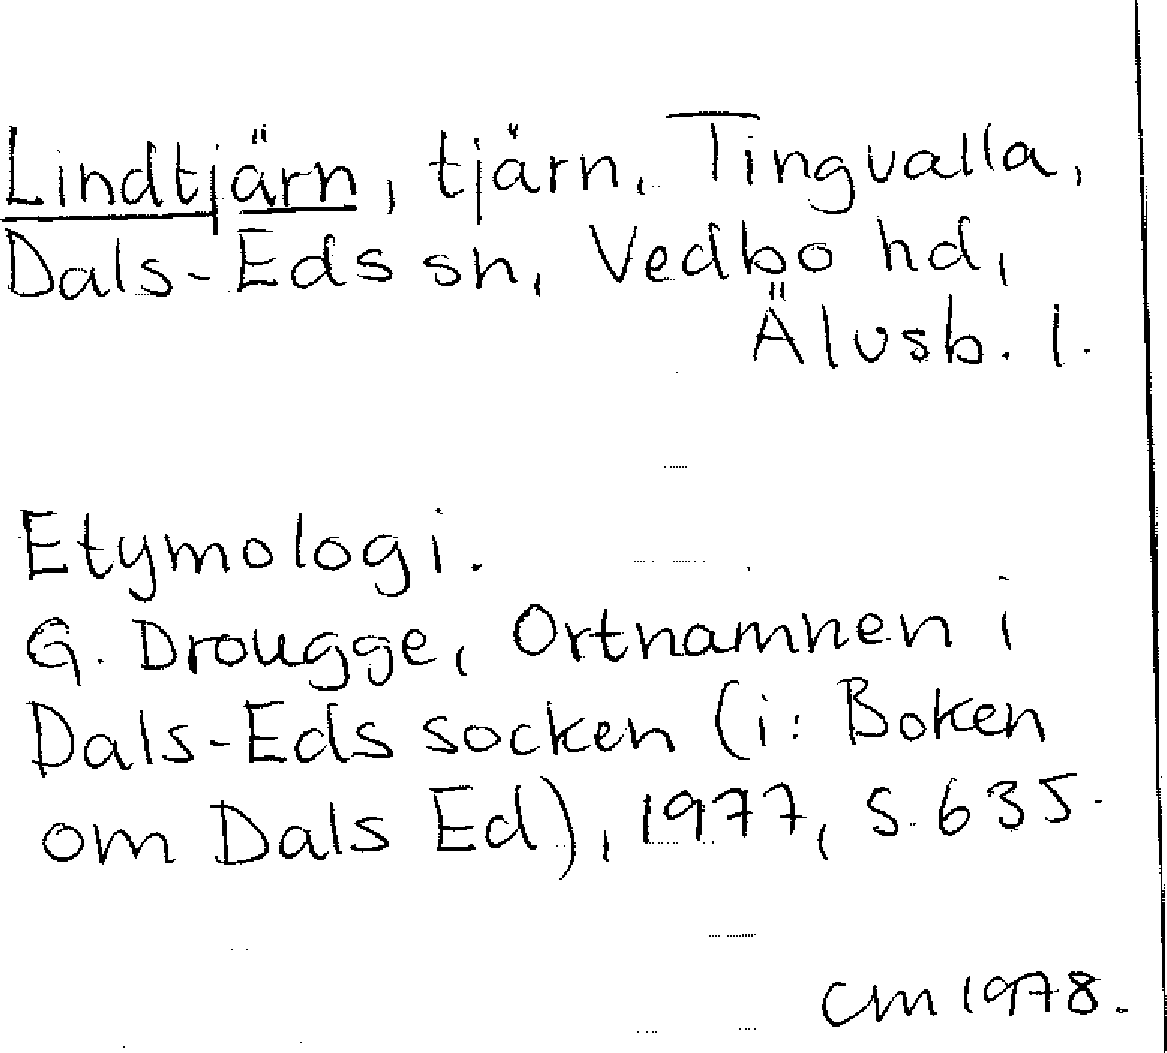 Lindtjärn, tjärn, Tingvalla,
Dals-Eds sn, Vedbo hd,
Älvsb. l.
Etymologi.
G. Drougge, Ortnamnen i
Dals-Eds socken (i: Boken
om Dals Ed), 1977, s. 635.
CM 1978.